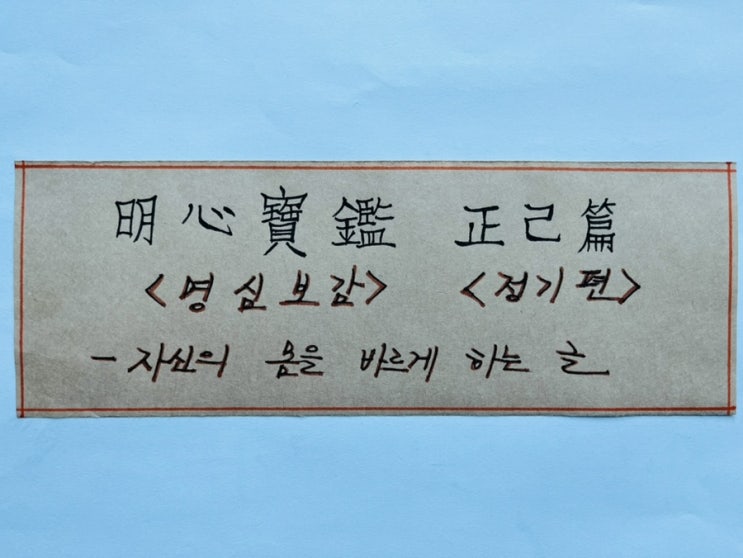 明心寶鑑 正己篇
<명심보감> <정기편>
- 자신의 몸을 바르게 하는 글